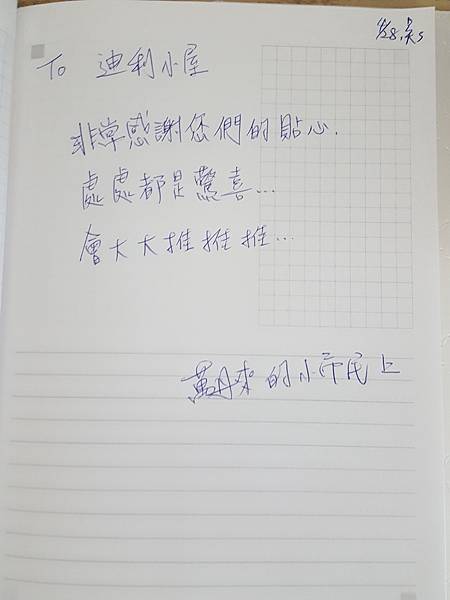 To 迪利小屋
非常感謝您們的貼心.
處處都是驚喜...
會大大推推推...
萬丹來的小市民上